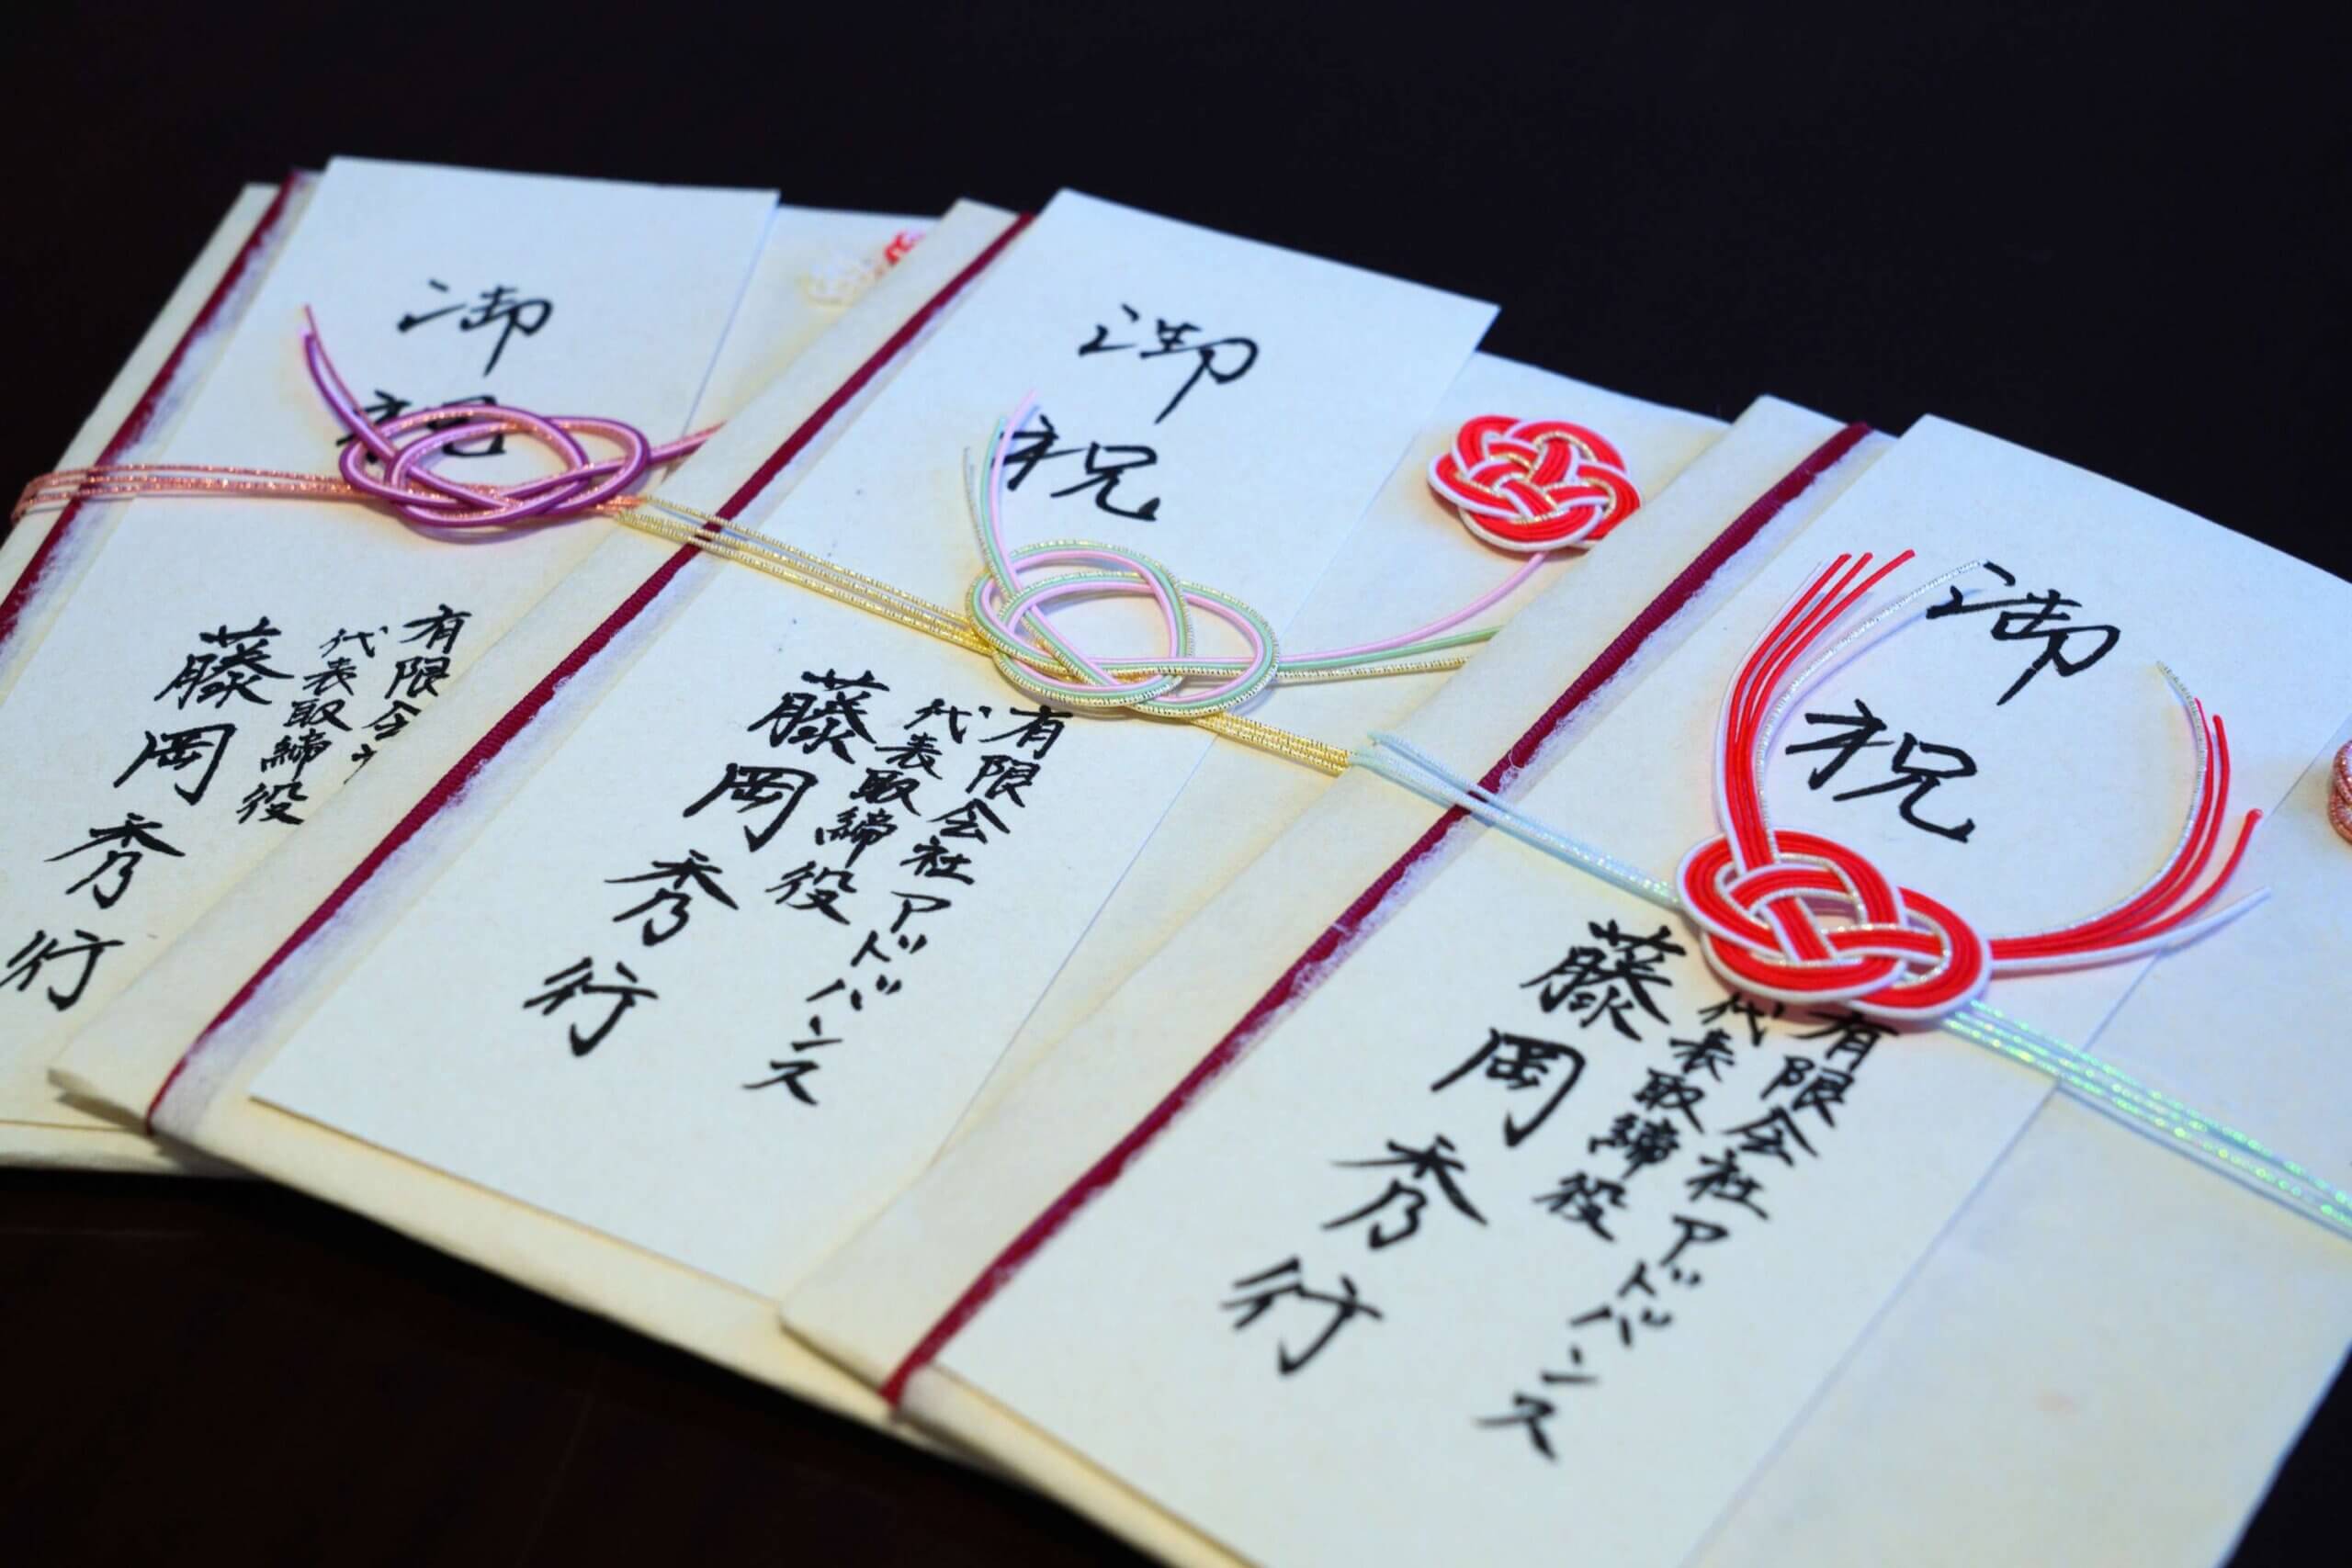 御祝
有限会
代表取締役
藤岡秀行
御祝
有限会社アドバンス
代表取締役
藤岡秀行
御祝
有限会社アドバンス
代表取締役
藤岡秀行